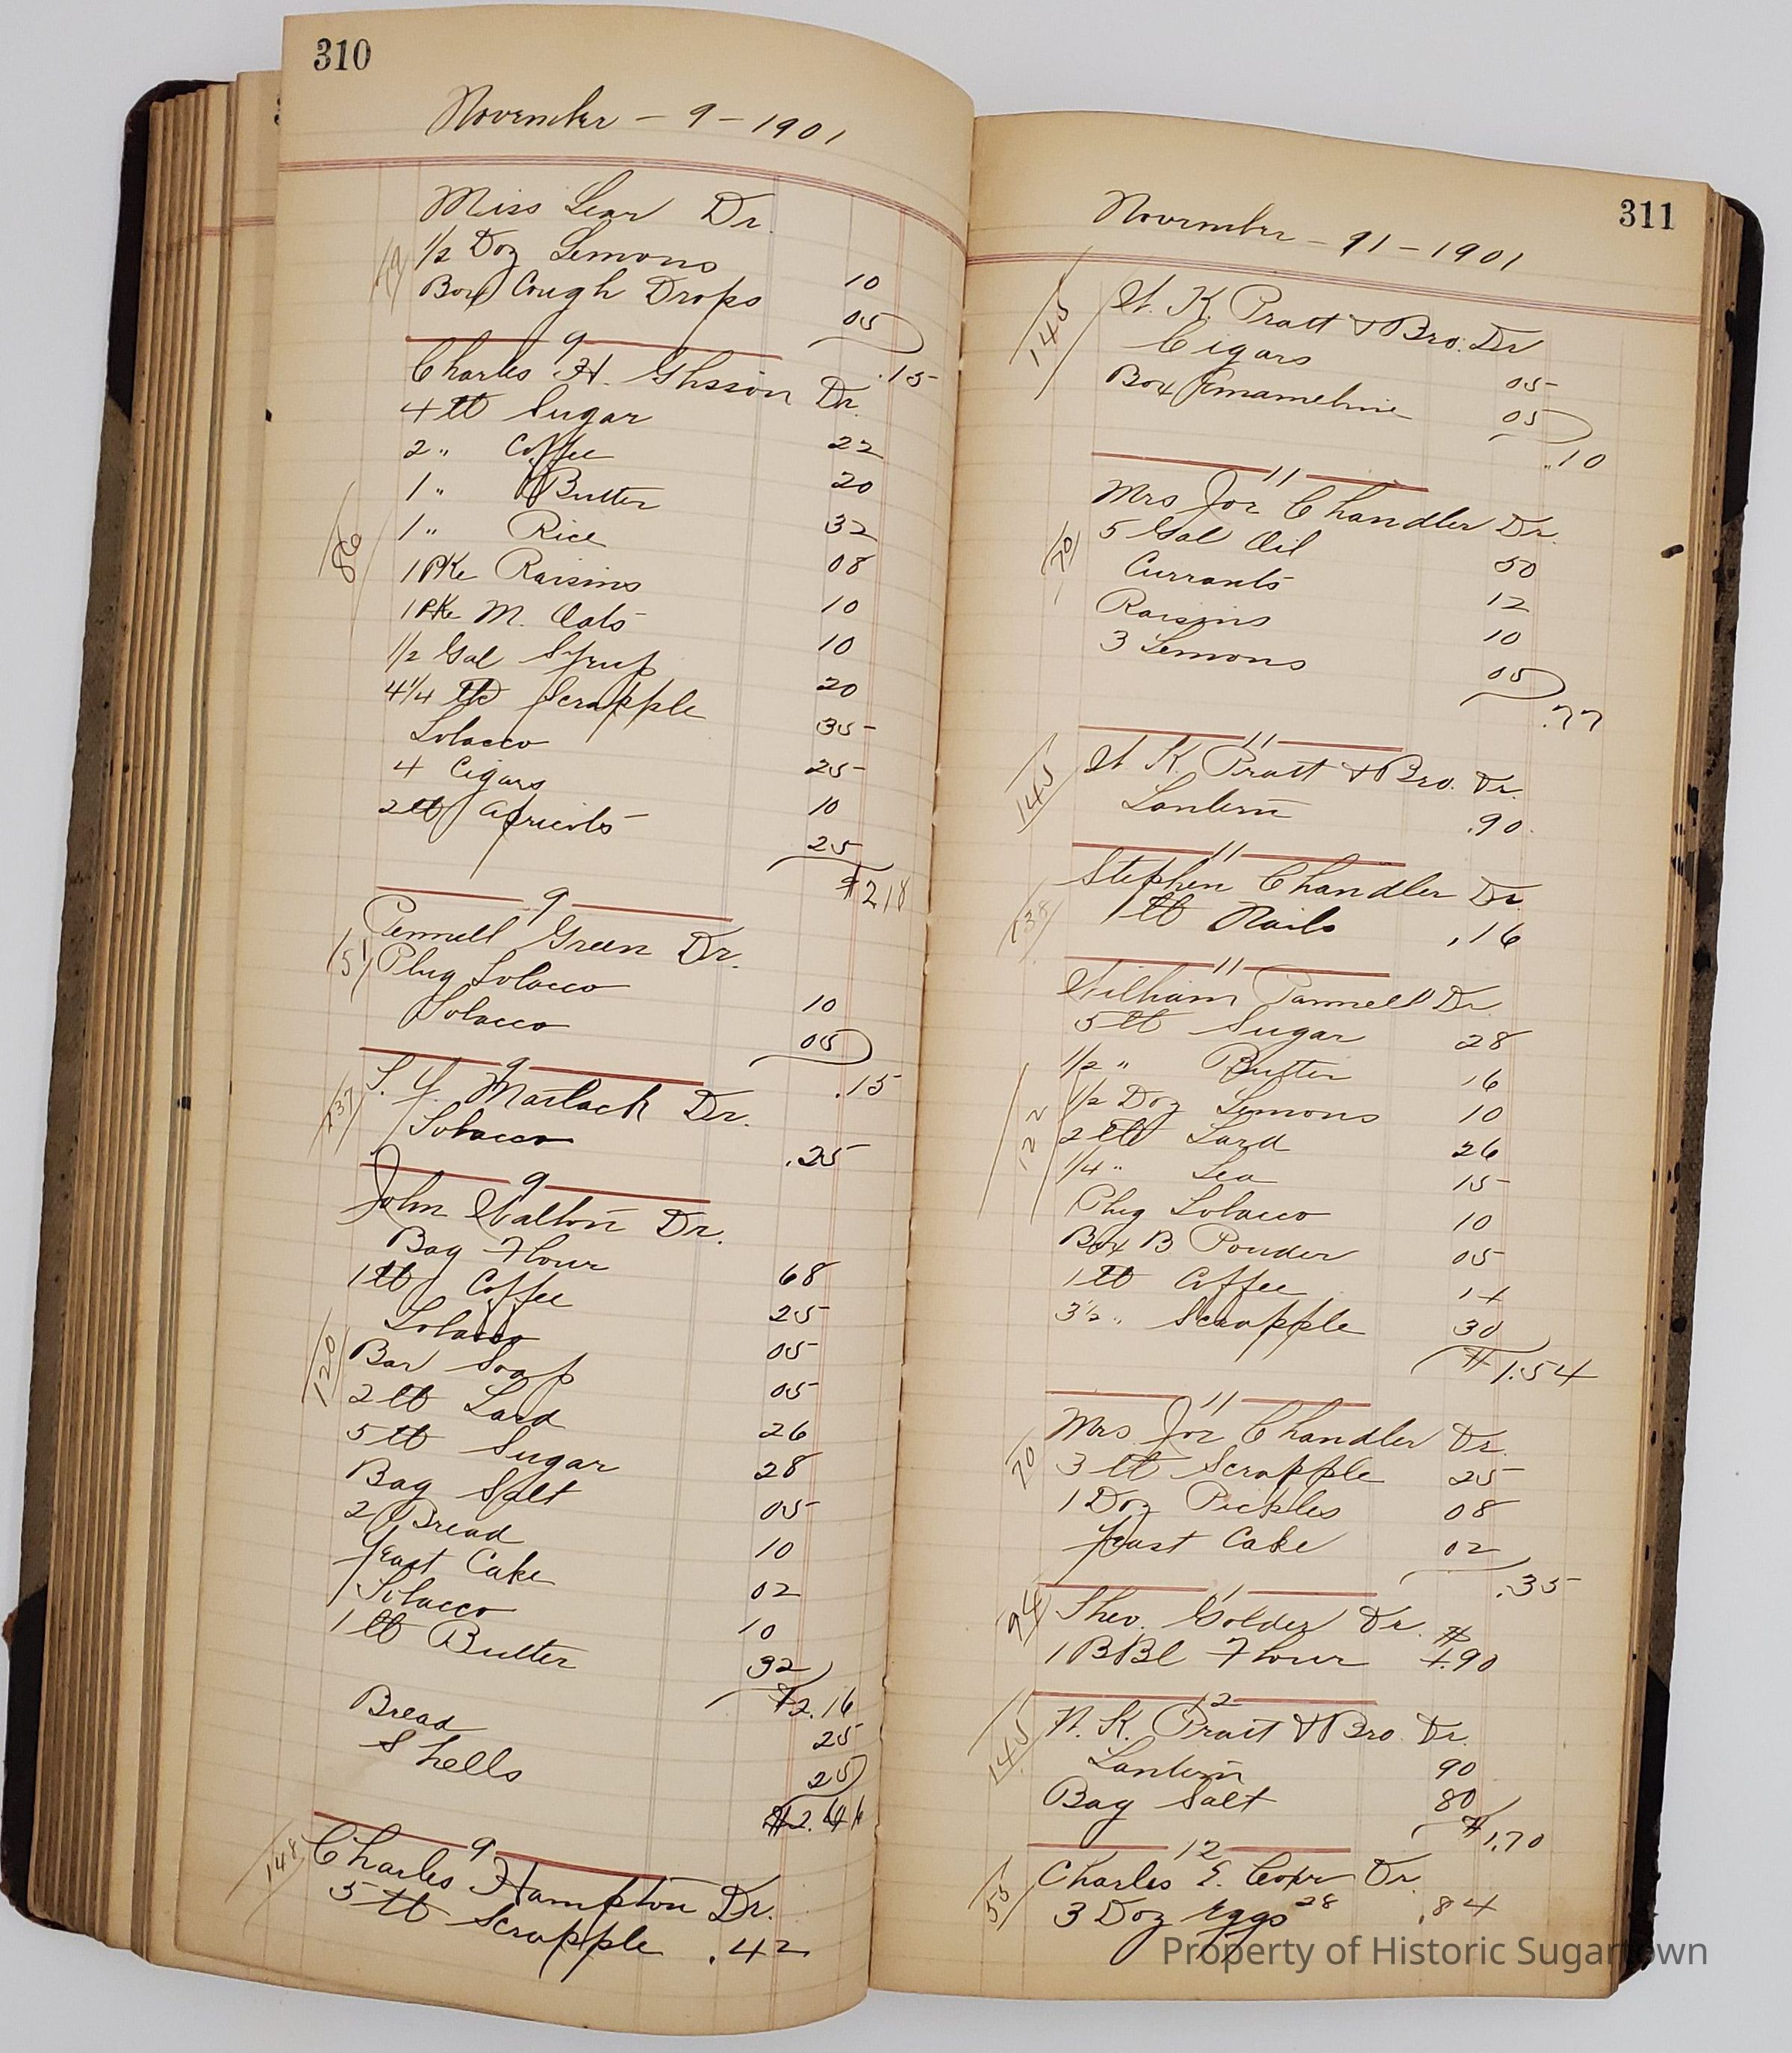 310
November - 9 - 1901
Miss Lear Dr.
1/2 Doz Lemons 10
Box Cough Drops 05
.15
9
Charles H. Dr.
4 lb Sugar 22
2 " Coffee 20
1 " Butter 32
1 " Rice 08
1 PKe Raisins 10
1 PKe M. Oats 10
1/2 Gal Syrup 20
4 1/4 lb Scrapple 35
Tobacco 25
4 Cigars 10
2 lb Apricots 25
$2.18
86
9
Pennell Green Dr.
151 Plug Tobacco 10
Tobacco 05
.15
9
137 S. Y. Matlack Dr.
Tobacco .25
9
John Walton Dr.
Bag Flour 68
1 lb Coffee 25
Tobacco 05
120 Bar Soap 05
2 lb Lard 26
5 lb Sugar 28
Bag Salt 05
2 Bread 10
Yeast Cake 02
Tobacco 10
1 lb Butter 32
$2.16
Bread 25
Shells 25
9
148 Charles Hampton Dr.
5 lb Scrapple .42
311
November - 11 - 1901
145 W. K. Pratt & Bro. Dr
Cigars 05
Box Enameline 05
.10
11
Mrs Joe Chandler Dr.
70 5 Gal Oil 50
Currants 12
Raisins 10
3 Lemons 05
.77
11
145 W. K. Pratt & Bro. Dr.
Lantern .90
11
Stephen Chandler Dr.
138 1 lb Nails .16
11
William Pannell Dr.
5 lb Sugar 28
1/2 " Butter 16
1/2 Doz Lemons 10
122 2 lb Lard 26
1/4 " Tea 15
Plug Tobacco 10
Box B Powder 05
1 lb Coffee 14
3 1/2 " Scrapple 30
$1.54
11
Mrs Joe Chandler Dr.
70 3 lb Scrapple 25
1 Doz Pickles 08
Yeast Cake 02
.35
11
94 Theo. Golder Dr.
1 BBl Flour $4.90
12
145 W. K. Pratt & Bro. Dr.
Lantern 90
Bag Salt 80
$1.70
12
55 Charles E. Dr.
3 Doz Eggs 28 .84
Property of Historic Sugartown